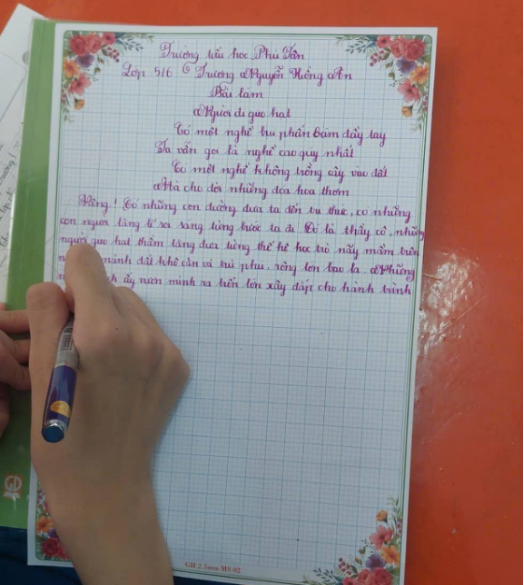 Trường tiểu học Phú Tân
Lớp 5/6 Trương Nguyễn Hồng Ân
Bài làm
Người đi gieo hạt
Có một nghề bụi phấn bám đầy tay
Ta vẫn gọi là nghề cao quý nhất
Có một nghề không trồng cây vào đất
Mà cho đời những đóa hoa thơm
Vâng! Có những con đường đưa ta đến tri thức, có những
con người lặng lẽ soi sáng từng bước ta đi. Đó là thầy cô, những
người gieo hạt thầm lặng đưa từng thế hệ học trò nảy mầm trên
mảnh đất khô cằn và trù phú, rộng lớn bao la. Những
ấy vươn mình ra biển lớn xây đắp cho hành trình
GH 2.5mm MS 02